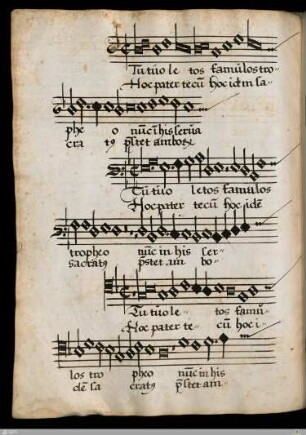 Tu tuo le tos famulos tro
Hoc pater tecū hoc idem sa
phe o nūc ī his serua
cra tꝰ p̄stet ambobꝫ
Tu tuo letos famulos
Hoc pater tecū hoc idē
tropheo nūc in his ser
sacratꝰ p̄stet am bo
Tu tuo le tos famu
Hoc pater te cū hoc i
los tro pheo nūc in his
dē sa cratꝰ p̄stet am